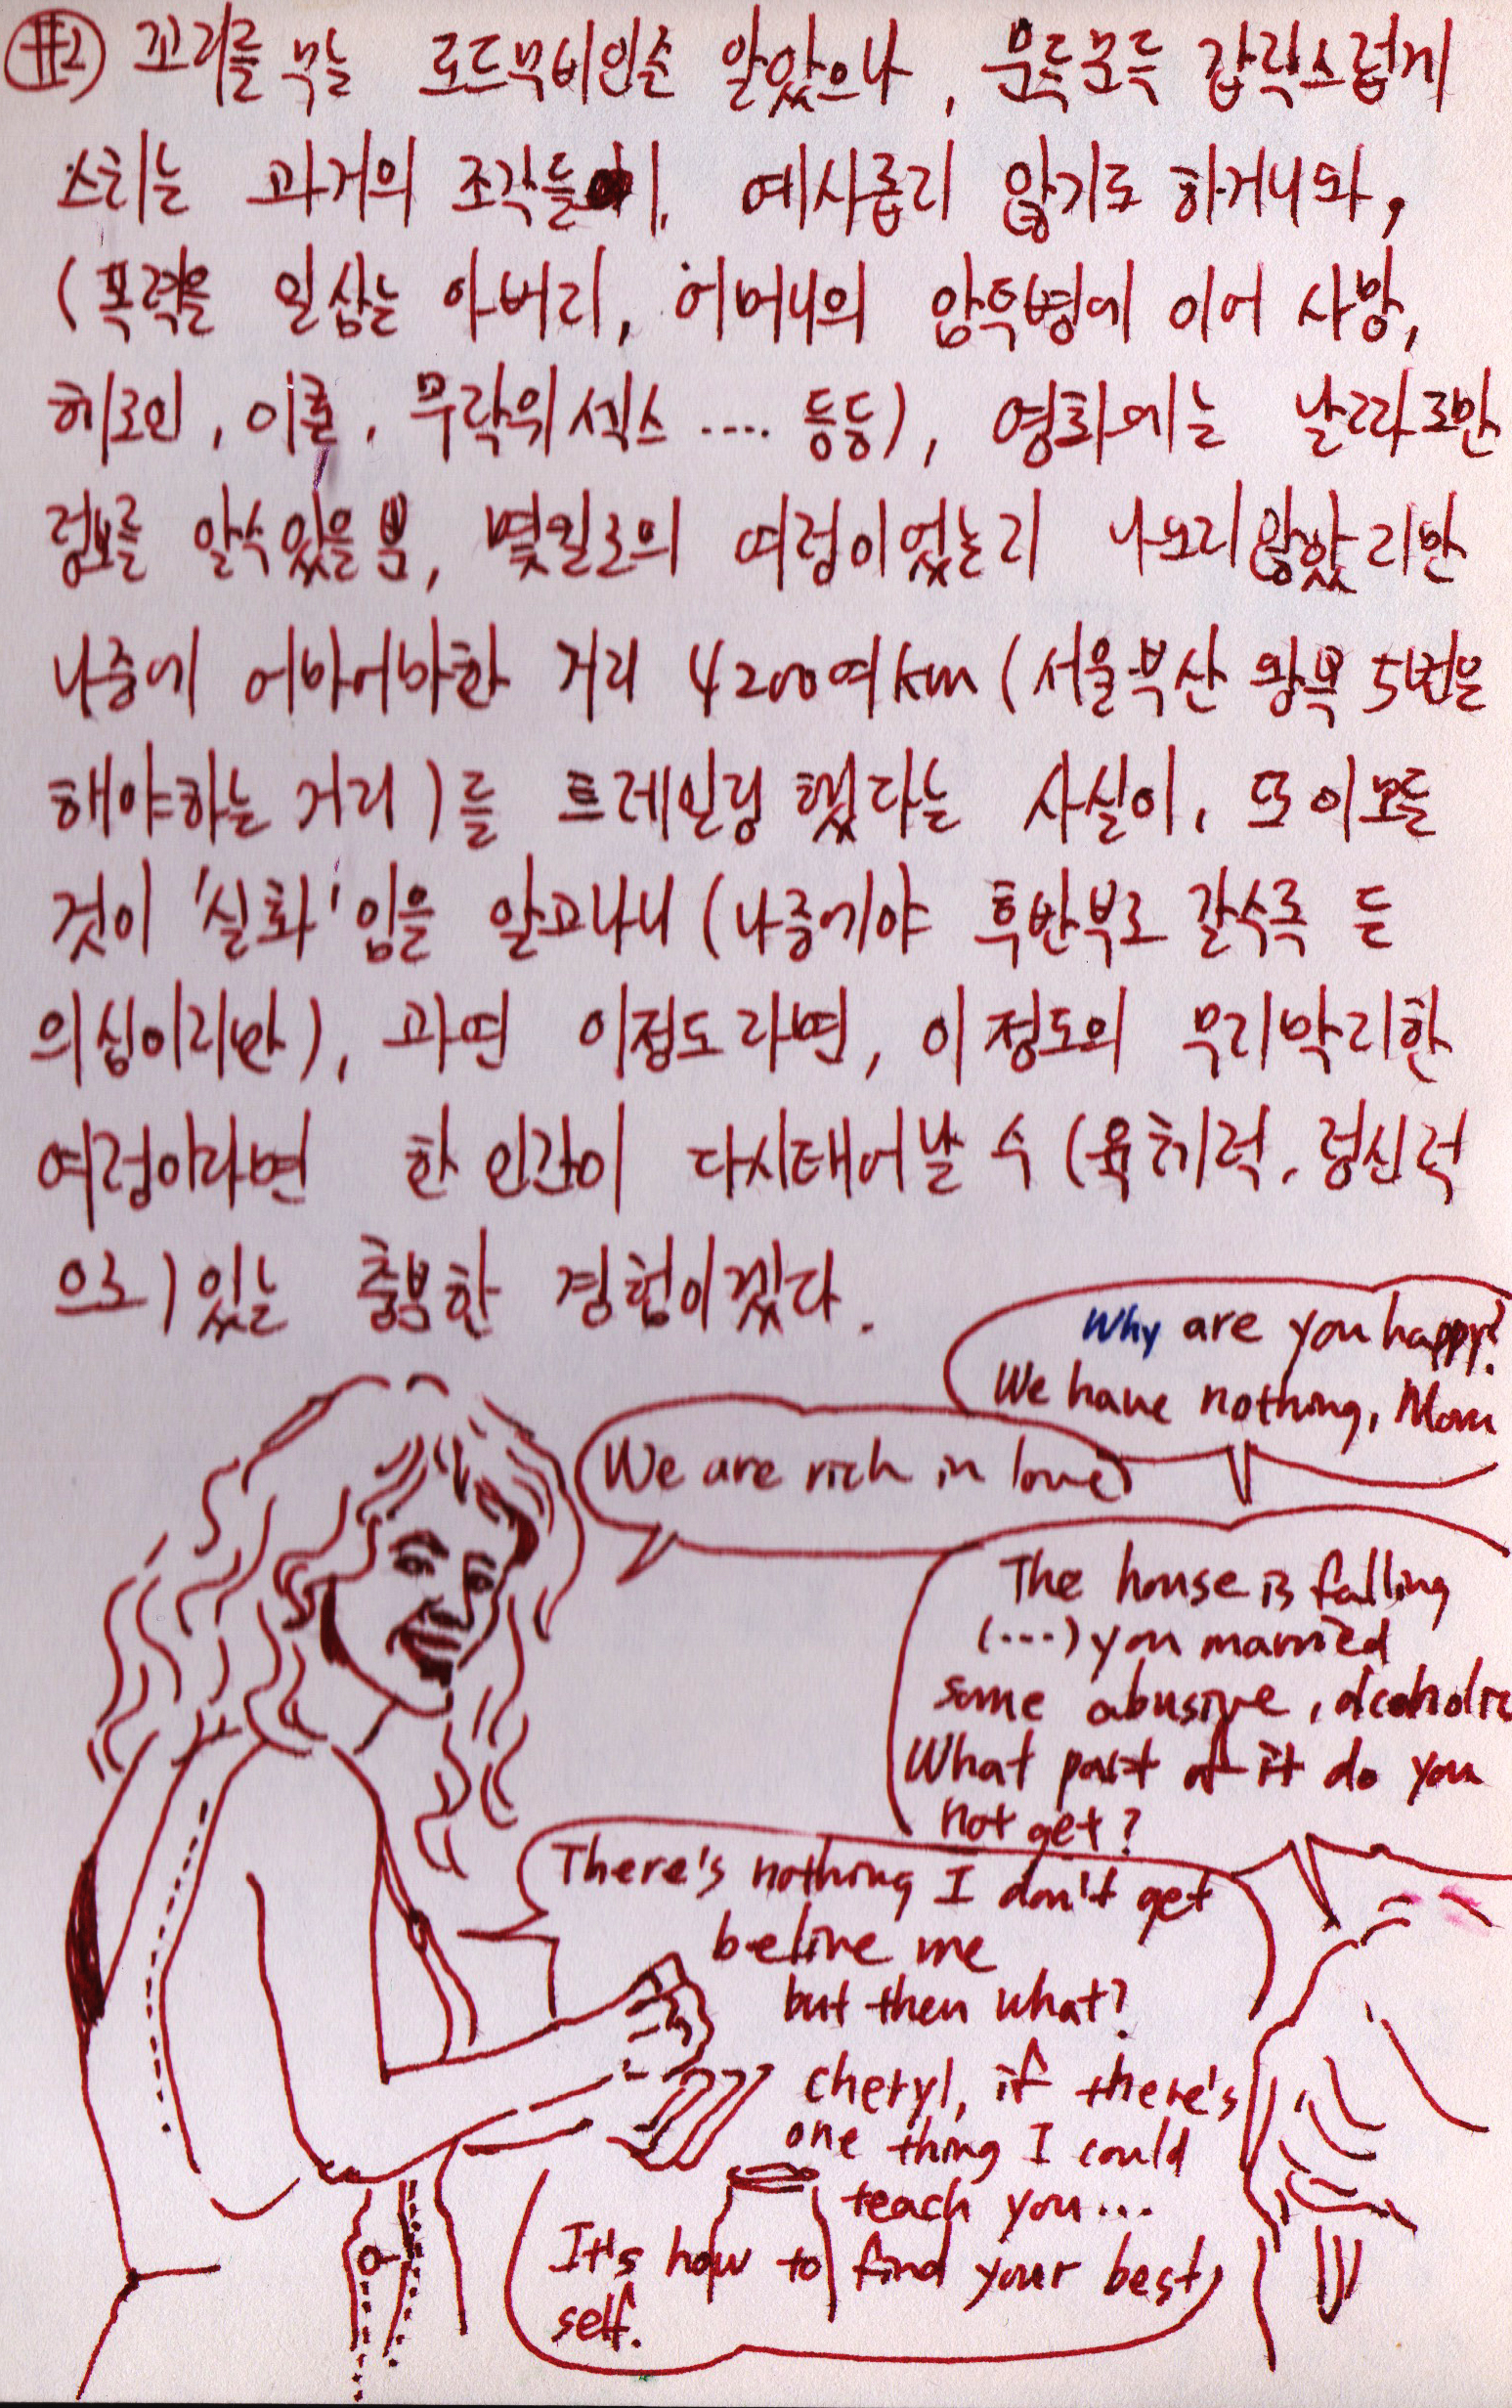 #2) 꼬리를 무는 로드무비인줄 알았으나, 문득문득 갑작스럽게
스치는 과거의 조각들이, 예사롭지 않기도 하거니와,
(폭력을 일삼는 아버지, 어머니의 암투병에 이어 사망,
헤로인, 이혼, 무작위섹스 .... 등등), 영화에는 날짜로만
정보를 알수있을뿐, 몇킬로의 여정이었는지 나오지않았지만
나중에 어마어마한 거리 4200여km (서울부산 왕복 5번은
해야하는 거리)를 트레일링 했다는 사실이, 또 이모든
것이 '실화'임을 알고나니 (나중에야 후반부로 갈수록 든
의심이지만), 과연 이정도라면, 이정도의 무지막지한
여정이라면 한 인간이 다시태어날 수 (육체적, 정신적
으로) 있는 충분한 경험이겠다.
Why are you happy?
We have nothing, Mom
We are rich in love
The house is falling
(...) you married
some abusive, alcoholic
What part of it do you
not get?
There's nothing I don't get
belive me
but then what?
cheryl, if there's
one thing I could
teach you...
It's how to find your best
self.